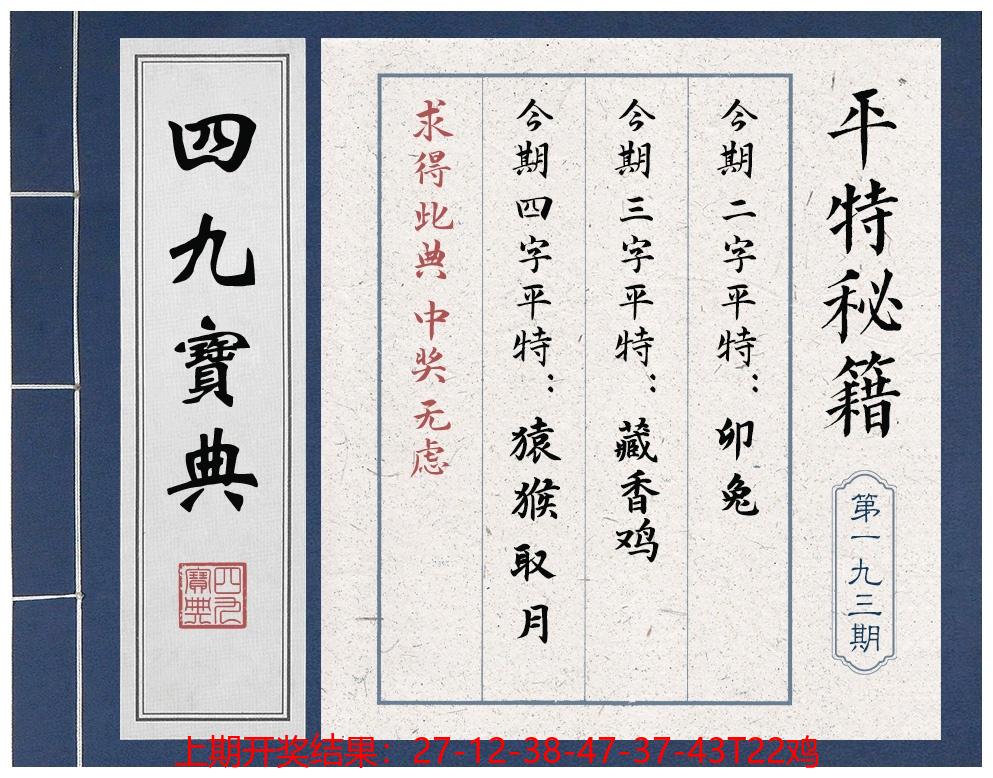 平特秘籍
第一九三期
今期二字平特：卯兔
今期三字平特：藏香鸡
今期四字平特：猿猴取月
求得此典 中奖无虑
四九寶典
四九
寶典
上期开奖结果：27-12-38-47-37-43T22鸡